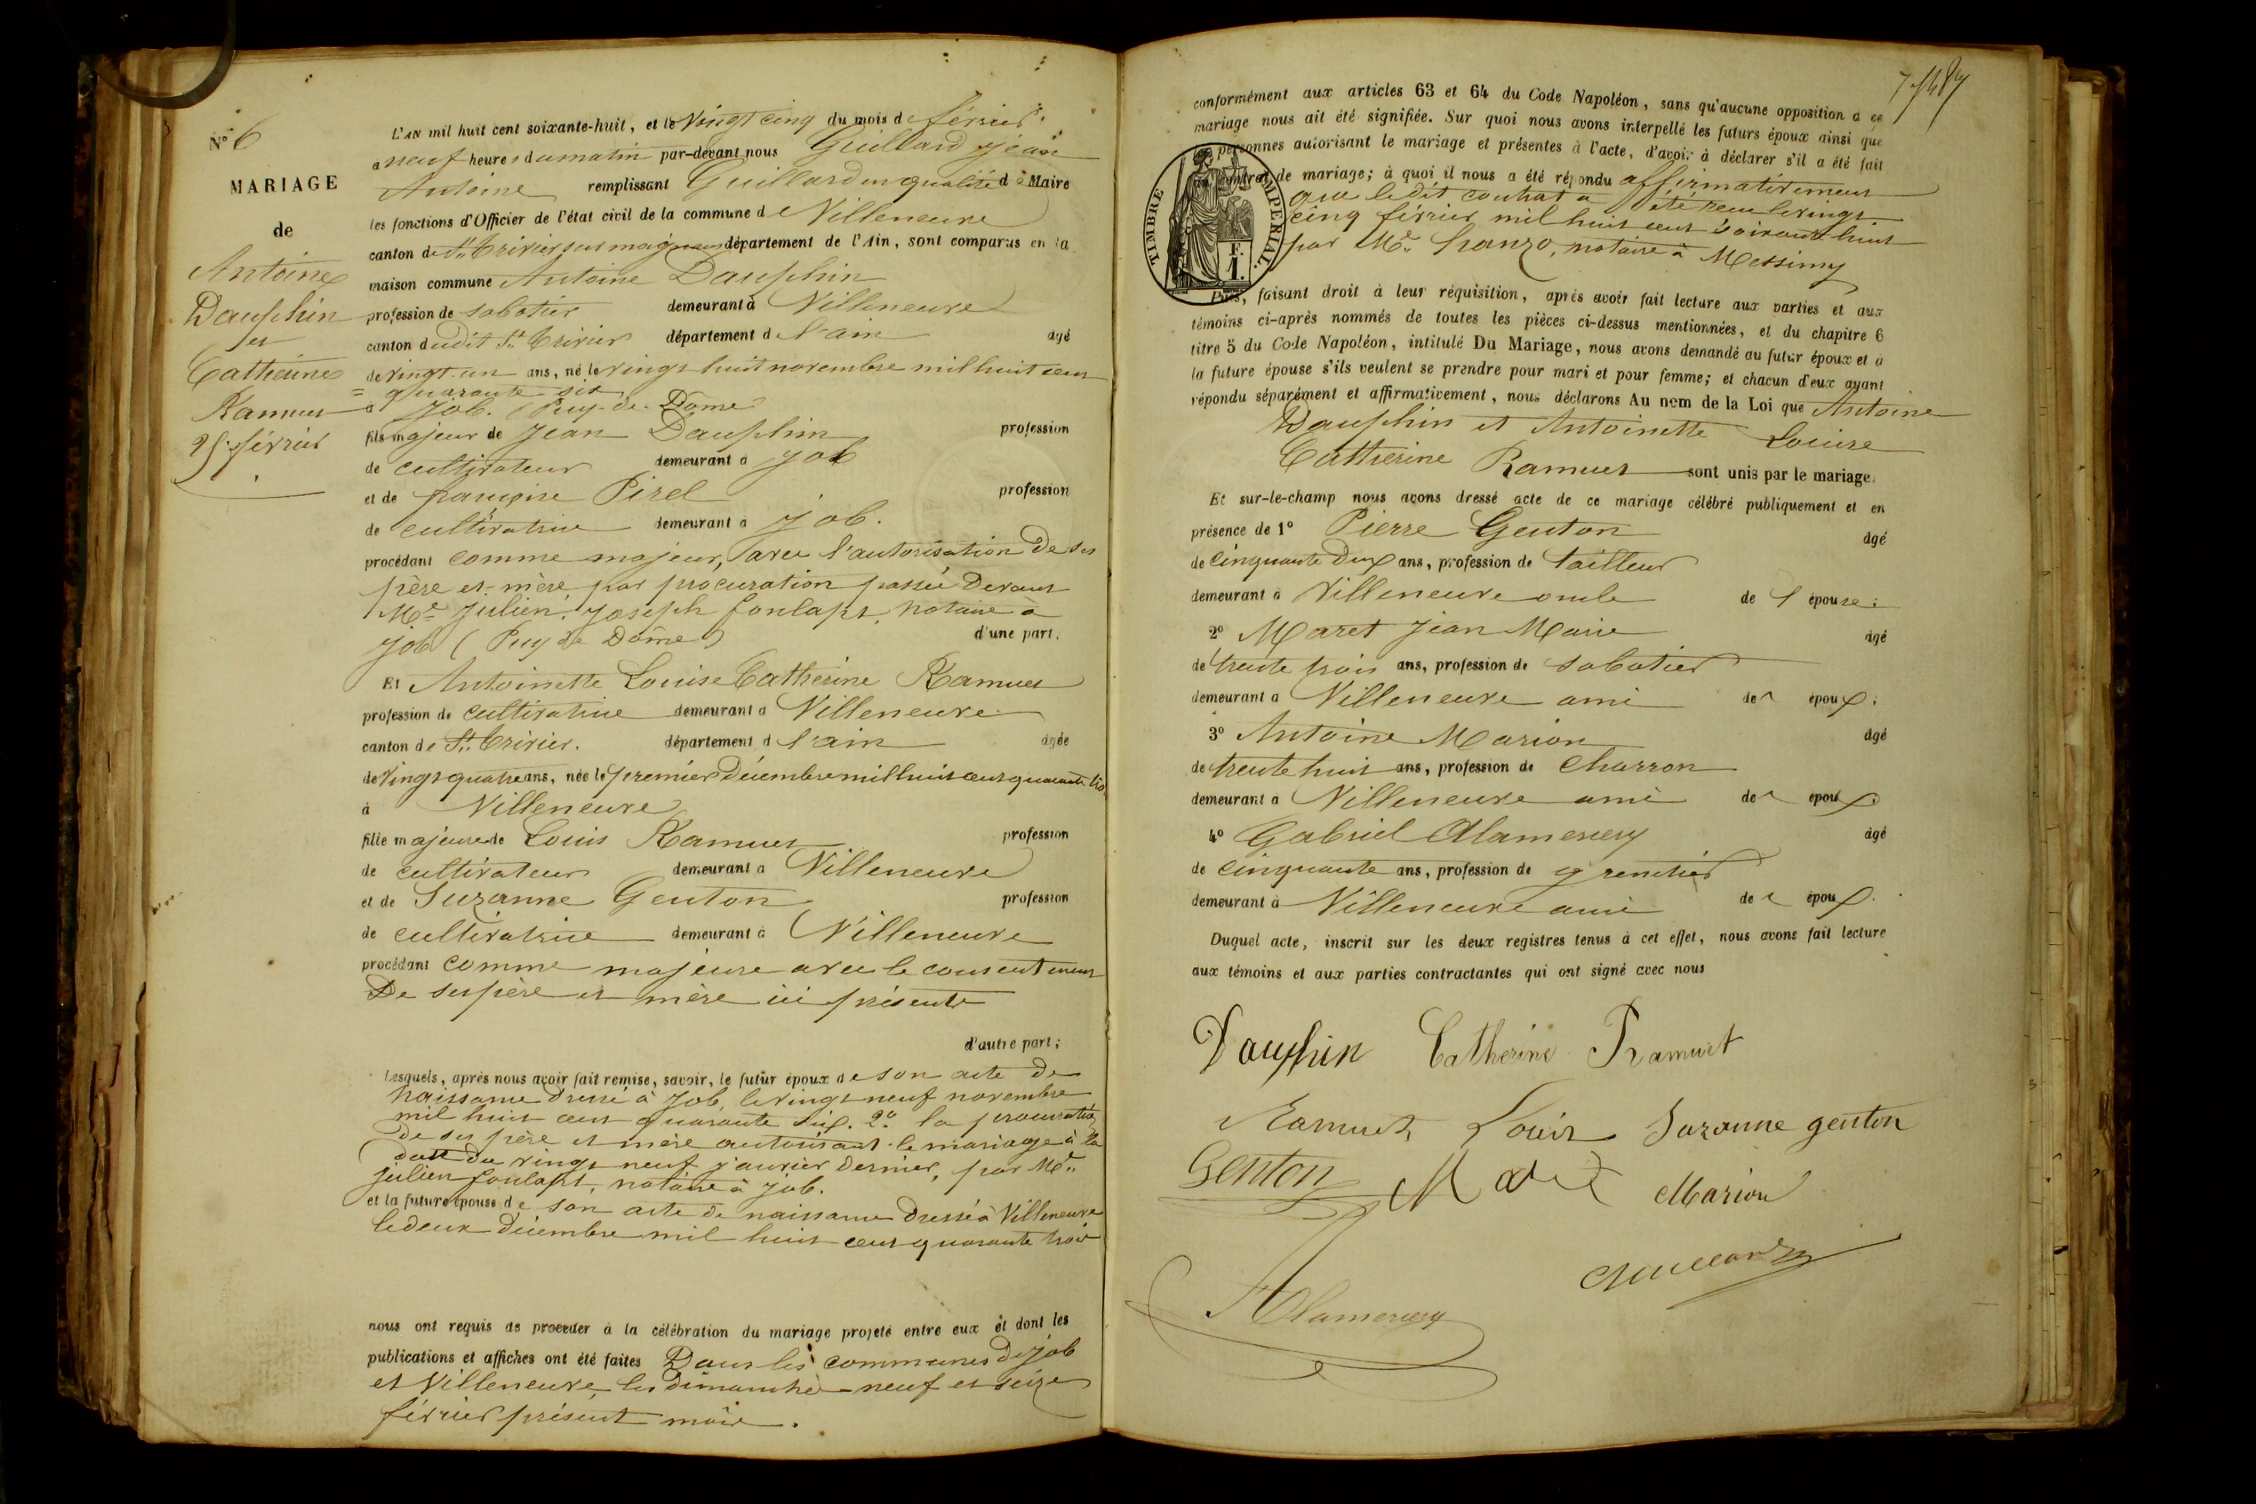 N° 6
MARIAGE
de
Antoine
Dauphin
et
Catherine
Ramuet
25 février
L'AN mil huit cent soixante-huit, et le vingt cinq du mois de février
a neuf heures du matin par-devant nous Guillard Jean
Antoine remplissant Guillard en qualité de Maire
les fonctions d'Officier de l'état civil de la commune de Villeneuve
canton de St Trivier sur département de l'Ain, sont comparus en la
maison commune Antoine Dauphin
profession de sabotier demeurant à Villeneuve
canton dudit St Trivier département de l'ain agé
de vingt-un ans, né le vingt huit novembre mil huit cent
= quarante six
à Job. (Puy-de-Dôme
fils majeur de Jean Dauphin profession
de cultivateur demeurant a Job
et de françoise Pirel profession
de cultivatrice demeurant a Job.
procédant comme majeur, avec l'autorisation de ses
père et mère par procuration passée devant
Me Julien Joseph notaire à
Job (Puy de Dôme) d'une part.
Et Antoinette Louise Catherine Ramuet
profession de cultivatrice demeurant a Villeneuve
canton de St Trivier. département d l'ain agée
de vingt quatre ans, née le premier Décembre mil huit cent quarante trois
à Villeneuve
fille majeure de Louis Ramuet profession
de cultivateur demeurant a Villeneuve
et de Suzanne Genton profession
de cultivatrice demeurant à Villeneuve
procédant comme majeure avec le consentement
De ses père et mère ici présente
d'autre part;
Lesquels, après nous avoir fait remise, savoir, le futur époux de son acte de
naissance dressé à Job, le vingt neuf novembre
mil huit cent quarante six. 2° la procuration
de ses père et mère autorisant le mariage à la
date du vingt neuf janvier dernier, par Me
julien notaire à Job.
et la future épouse de son acte de naissance dressé à Villeneuve
le deux décembre mil huit cent quarante trois
nous ont requis de procéder à la célébration du mariage projeté entre eux et dont les
publications et affiches ont été faites Dans les communes de Job
et Villeneuve les dimanche neuf et seize
février présent mois.
conformément aux articles 63 et 64 du Code Napoléon, sans qu'aucune opposition à ce
mariage nous ait été signifiée. Sur quoi nous avons interpellé les futurs époux ainsi que
personnes autorisant le mariage et présentes à l'acte, d'avoir à déclarer s'il a été fait
contrat de mariage; à quoi il nous a été répondu affirmativement
que le dit contrat a été reçu le vingt
cinq février mil huit cent soixante huit
par Me notaire à Messimy
TIMBRE IMPERIAL.
F.
1.
Puis, faisant droit à leur réquisition, après avoir fait lecture aux parties et aux
témoins ci-après nommés de toutes les pièces ci-dessus mentionnées, et du chapitre 6
titre 5 du Code Napoléon, intitulé Du Mariage, nous avons demandé au futur époux et à
la future épouse s'ils veulent se prendre pour mari et pour femme; et chacun d'eux ayant
répondu séparément et affirmativement, nous déclarons Au nom de la Loi que Antoine
Dauphin et Antoinette Louise
Catherine Ramuet sont unis par le mariage.
Et sur-le-champ nous avons dressé acte de ce mariage célébré publiquement et en
présence de 1° Pierre Genton agé
de cinquante Deux ans, profession de tailleur
demeurant à Villeneuve oncle de l'épouse;
2° Maret Jean Marie agé
de trente trois ans, profession de sabotier
demeurant a Villeneuve ami de l'époux;
3° Antoine Marion agé
de trente huit ans, profession de charron
demeurant a Villeneuve ami de l'époux
4° Gabriel Alamercery agé
de cinquante ans, profession de
demeurant à Villeneuve ami de l'époux.
Duquel acte, inscrit sur les deux registres tenus à cet effet, nous avons fait lecture
aux témoins et aux parties contractantes qui ont signé avec nous
Dauphin Catherine Ramuet
Ramuet Louis Suzanne genton
Genton Maret Marion
Alamercery